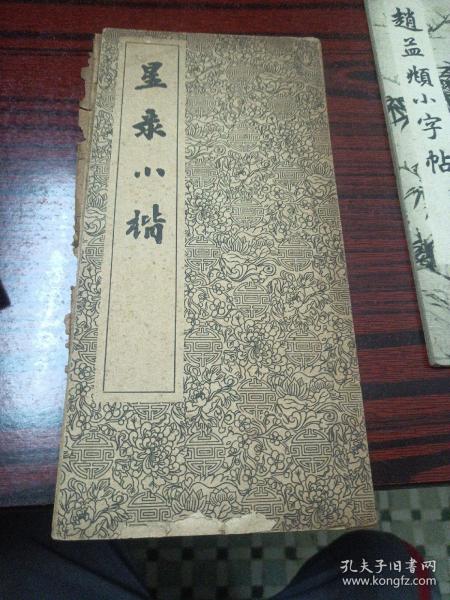 星彔小楷
趙孟頫小字帖
孔夫子旧书网
www.kongfz.com